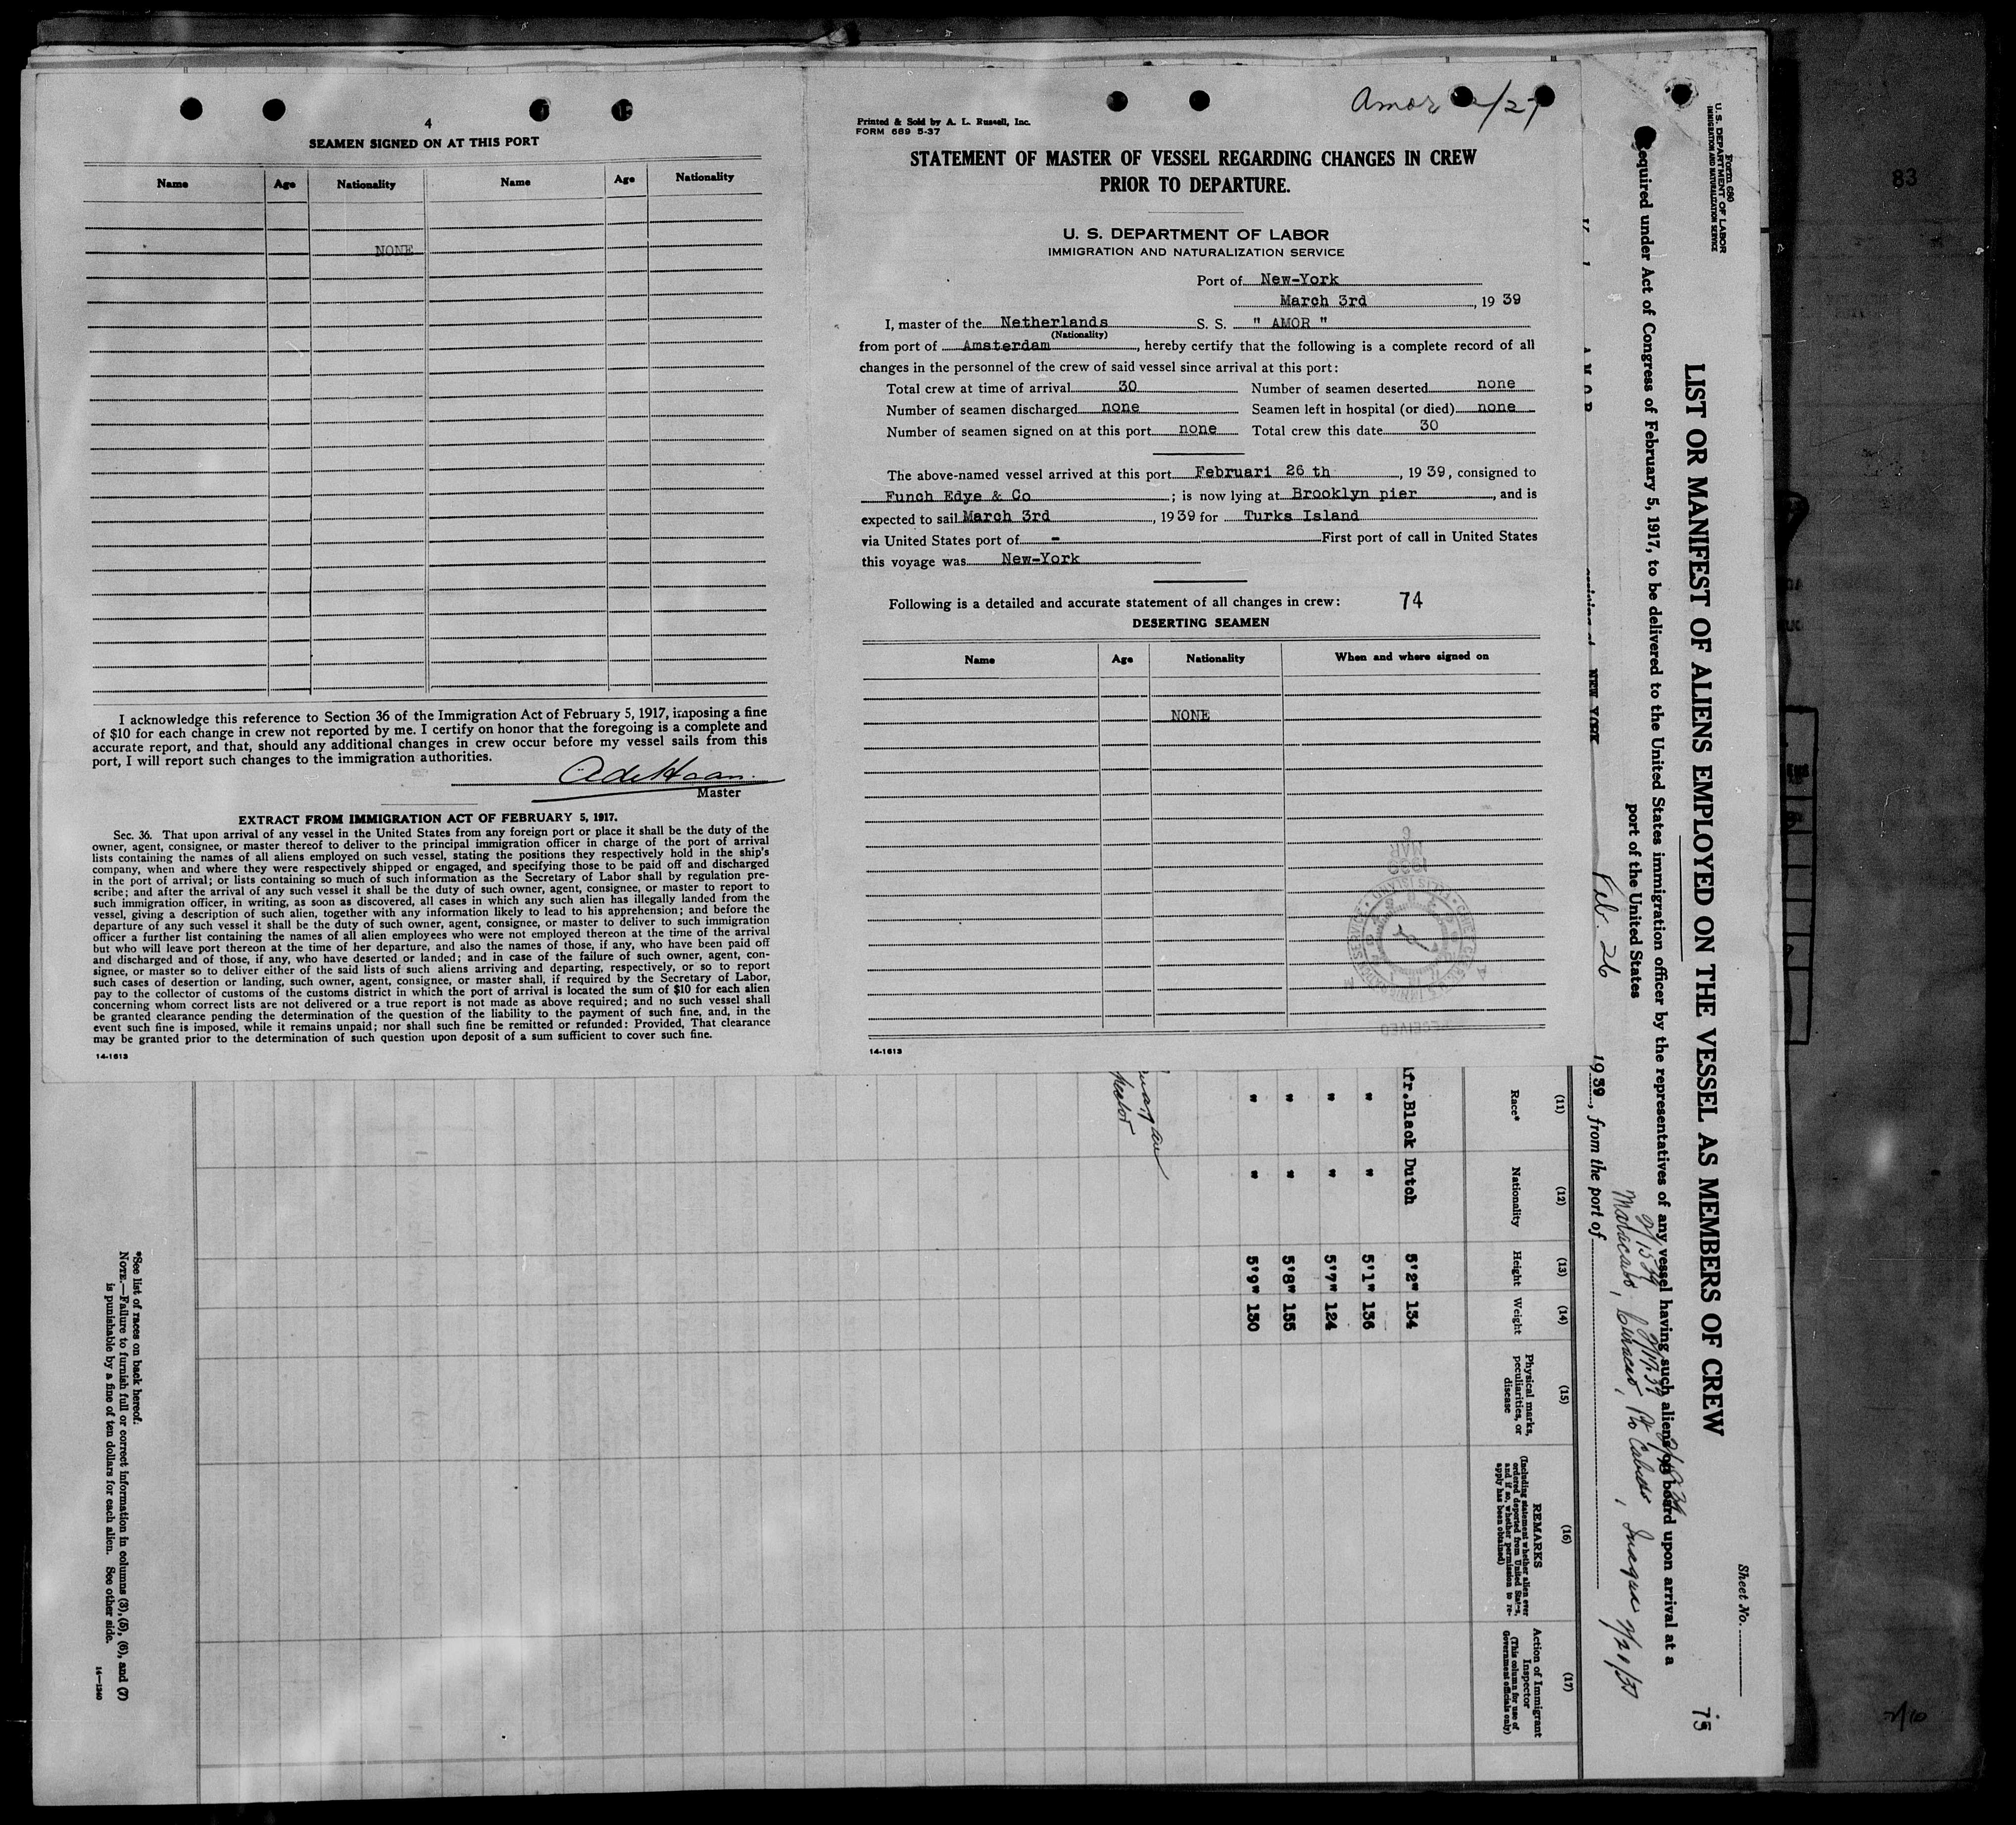 4
SEAMEN SIGNED ON AT THIS PORT
Name Age Nationality Name Age Nationality
NONE
I acknowledge this reference to Section 36 of the Immigration Act of February 5, 1917, imposing a fine
of $10 for each change in crew not reported by me. I certify on honor that the foregoing is a complete and
accurate report, and that, should any additional changes in crew occur before my vessel sails from this
port, I will report such changes to the immigration authorities.
A de Haan.
Master
EXTRACT FROM IMMIGRATION ACT OF FEBRUARY 5, 1917.
Sec. 36. That upon arrival of any vessel in the United States from any foreign port or place it shall be the duty of the
owner, agent, consignee, or master thereof to deliver to the principal immigration officer in charge of the port of arrival
lists containing the names of all aliens employed on such vessel, stating the positions they respectively hold in the ship's
company, when and where they were respectively shipped or engaged, and specifying those to be paid off and discharged
in the port of arrival; or lists containing so much of such information as the Secretary of Labor shall by regulation pre-
scribe; and after the arrival of any such vessel it shall be the duty of such owner, agent, consignee, or master to report to
such immigration officer, in writing, as soon as discovered, all cases in which any such alien has illegally landed from the
vessel, giving a description of such alien, together with any information likely to lead to his apprehension; and before the
departure of any such vessel it shall be the duty of such owner, agent, consignee, or master to deliver to such immigration
officer a further list containing the names of all alien employees who were not employed thereon at the time of the arrival
but who will leave port thereon at the time of her departure, and also the names of those, if any, who have been paid off
and discharged and of those, if any, who have deserted or landed; and in case of the failure of such owner, agent, con-
signee, or master so to deliver either of the said lists of such aliens arriving and departing, respectively, or so to report
such cases of desertion or landing, such owner, agent, consignee, or master shall, if required by the Secretary of Labor,
pay to the collector of customs of the customs district in which the port of arrival is located the sum of $10 for each alien
concerning whom correct lists are not delivered or a true report is not made as above required; and no such vessel shall
be granted clearance pending the determination of the question of the liability to the payment of such fine, and, in the
event such fine is imposed, while it remains unpaid; nor shall such fine be remitted or refunded: Provided, That clearance
may be granted prior to the determination of such question upon deposit of a sum sufficient to cover such fine.
14-1613
Amor /27
Printed & Sold by A. L. Russell, Inc.
FORM 689 5-37
STATEMENT OF MASTER OF VESSEL REGARDING CHANGES IN CREW
PRIOR TO DEPARTURE.
U. S. DEPARTMENT OF LABOR
IMMIGRATION AND NATURALIZATION SERVICE
Port of New-York
March 3rd, 1939
I, master of the Netherlands S. S. " AMOR "
(Nationality)
from port of Amsterdam, hereby certify that the following is a complete record of all
changes in the personnel of the crew of said vessel since arrival at this port:
Total crew at time of arrival 30 Number of seamen deserted none
Number of seamen discharged none Seamen left in hospital (or died) none
Number of seamen signed on at this port none Total crew this date 30
The above-named vessel arrived at this port Februari 26 th, 1939, consigned to
Funch Edye & Co; is now lying at Brooklyn pier, and is
expected to sail March 3rd, 1939 for Turks Island
via United States port of - First port of call in United States
this voyage was New-York
Following is a detailed and accurate statement of all changes in crew: 74
DESERTING SEAMEN
Name Age Nationality When and where signed on
NONE
MAR 1939
RECEIVED
14-1613
Form 680
U. S. DEPARTMENT OF LABOR
IMMIGRATION AND NATURALIZATION SERVICE
Sheet No.
75
LIST OR MANIFEST OF ALIENS EMPLOYED ON THE VESSEL AS MEMBERS OF CREW
Required under Act of Congress of February 5, 1917, to be delivered to the United States immigration officer by the representatives of any vessel having such aliens on board upon arrival at a
port of the United States
NEW YORK Feb. 26 1939, from the port of
Maracaibo, Curacao, Pto Cabello, Inagua 2/21/39
(11) (12) (13) (14) (15) (16) (17)
Race* Nationality Height Weight
Physical marks, peculiarities, or disease
REMARKS
(Including statement whether alien ever ordered deported from United States, and if so, whether permission to reapply has been obtained)
Action of Immigrant Inspector
(This column for use of Government officials only)
Afr.Black Dutch 5'2" 134
" " 5'1" 136
" " 5'7" 124
" " 5'8" 155
" " 5'9" 130
*See list of races on back hereof.
NOTE.—Failure to furnish full or correct information in columns (3), (5), (6), and (7)
is punishable by a fine of ten dollars for each alien. See other side.
14-1240
83